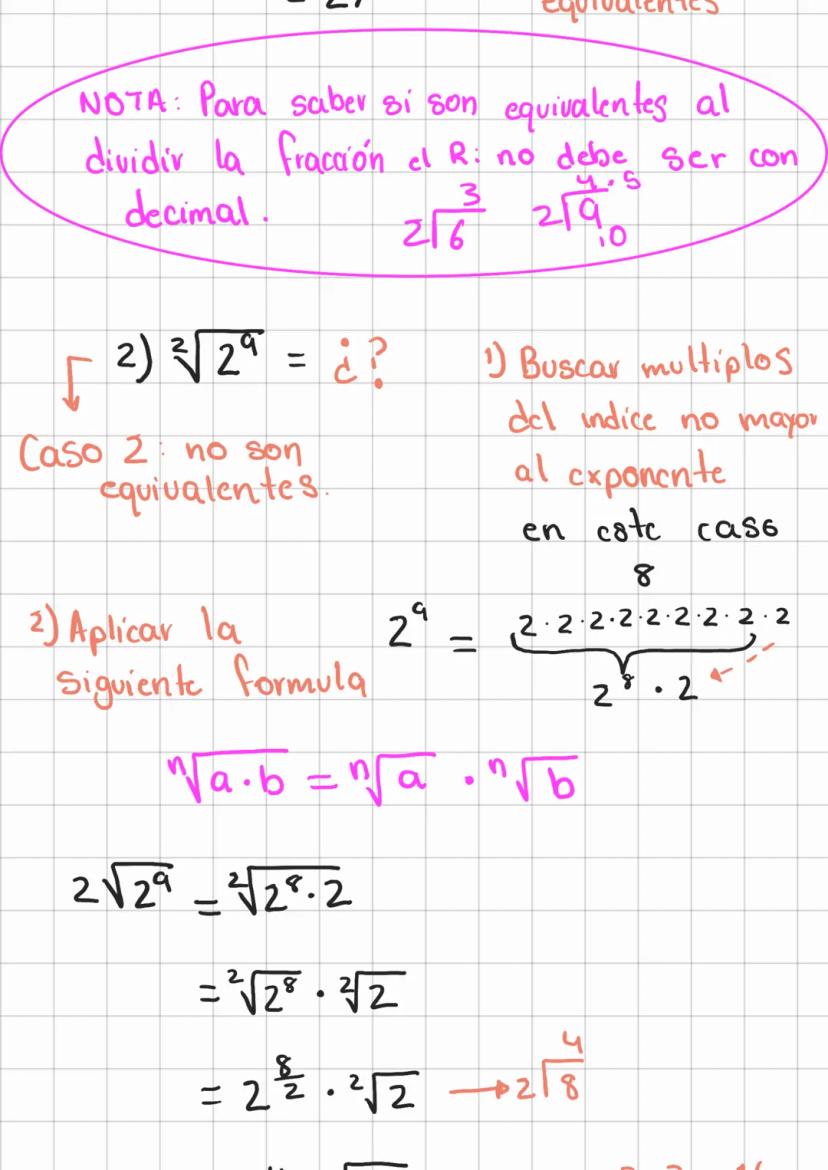 equivalentes
NOTA: Para saber si son equivalentes al
dividir la fracción el R: no debe ser con
decimal.
3
2√6
4.5
2√9
10
2) ²√2⁹ = ¿?
Caso 2: no son
equivalentes.
1) Buscar multiplos
del indice no mayor
al exponente
en este caso
8
2) Aplicar la
siguiente formula
2⁹ = 2·2·2·2·2·2·2·2·2
2⁸ · 2
ⁿ√a·b = ⁿ√a · ⁿ√b
2√2⁹ = ²√2⁸·2
= ²√2⁸ · ²√2
= 2^(8/2) · ²√2 → 2√8
4